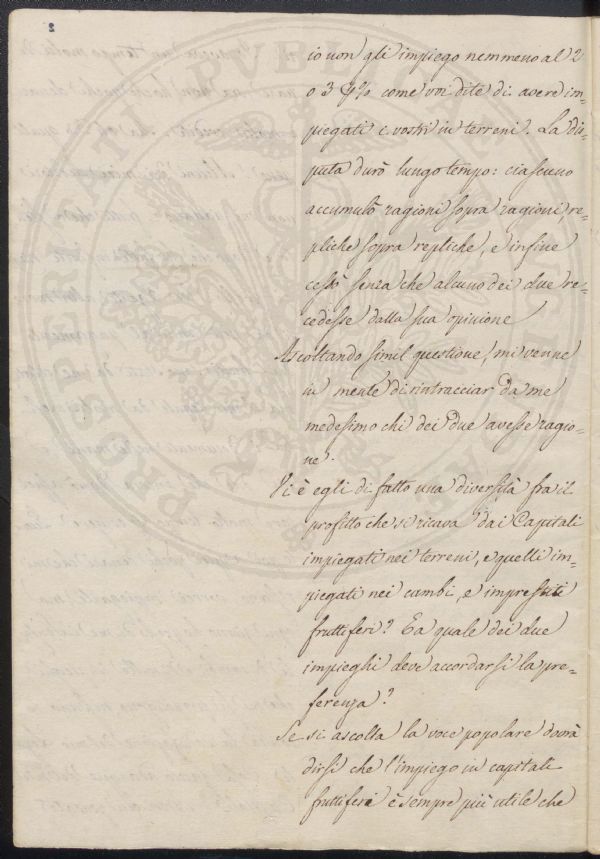 2
io non gli impiego nemmeno al 2
o 3 p% come voi dite di avere im=
piegati i vostri in terreni. La dis=
puta durò lungo tempo: ciascuno
accumulò ragioni sopra ragioni, re=
pliche sopra repliche, e infine
cessò senza che alcuno dei due re=
cedesse dalla sua opinione
Ascoltando simil questione, mi venne
in mente di rintracciar da me
medesimo chi dei due avesse ragio=
ne.
Vi è egli di fatto una diversità fra il
profitto che si ricava dai Capitali
impiegati nei terreni, e quelli im=
piegati nei cambi, e imprestiti
fruttiferi? E a quale dei due
impieghi deve accordarsi la pre=
ferenza?
Se si ascolta la voce popolare dovrà
dirsi che l'impiego in capitali
fruttiferi è sempre più utile che